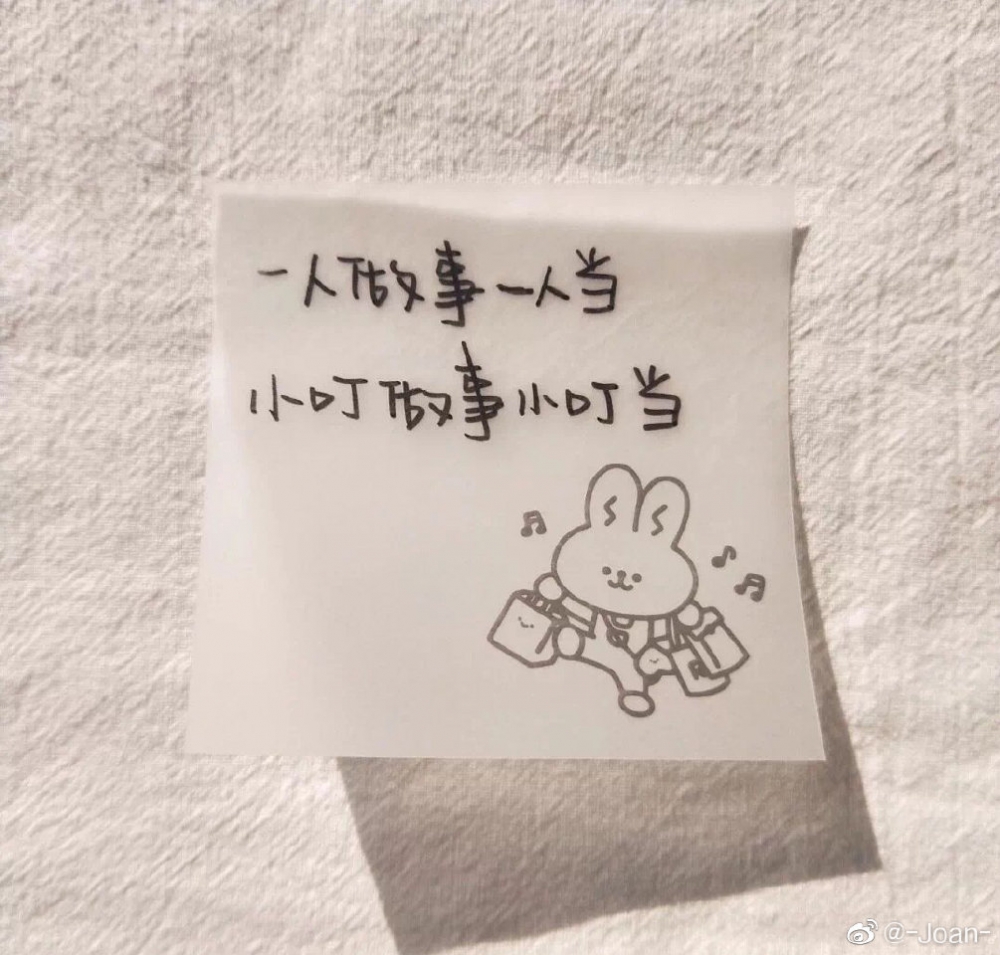 一人做事一人当
小叮做事小叮当
@-Joan-